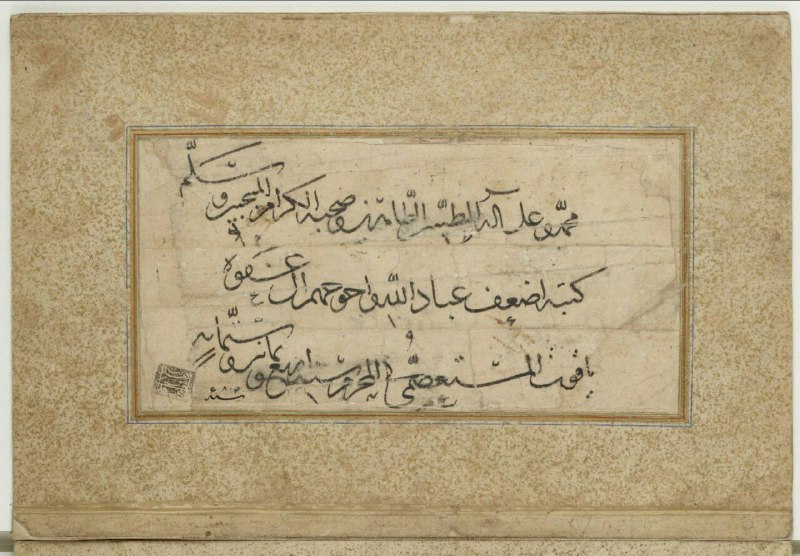 محمد و على آله الطيبين الطاهرين و صحبه الكرام المنتجبين و سلم
كتبه اضعف عباد الله و احوجهم الى عفوه
ياقوت المستعصمي في المحرم سنة اربع و ثمانين و ستمائة
سنة